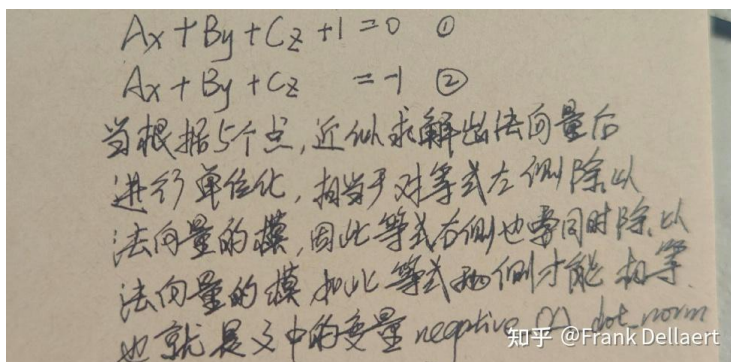 Ax + By + Cz + 1 = 0 ①
Ax + By + Cz = -1 ②
当根据5个点,近似求解出法向量后
进行单位化,相当于对等式左侧除以
法向量的模,因此等式右侧也要同时除以
法向量的模 如此等式两侧才能相等.
也就是文中的变量 negative OA dot_norm
知乎 @Frank Dellaert